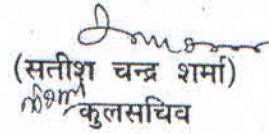 (सतीश चन्द्र शर्मा)
कुलसचिव